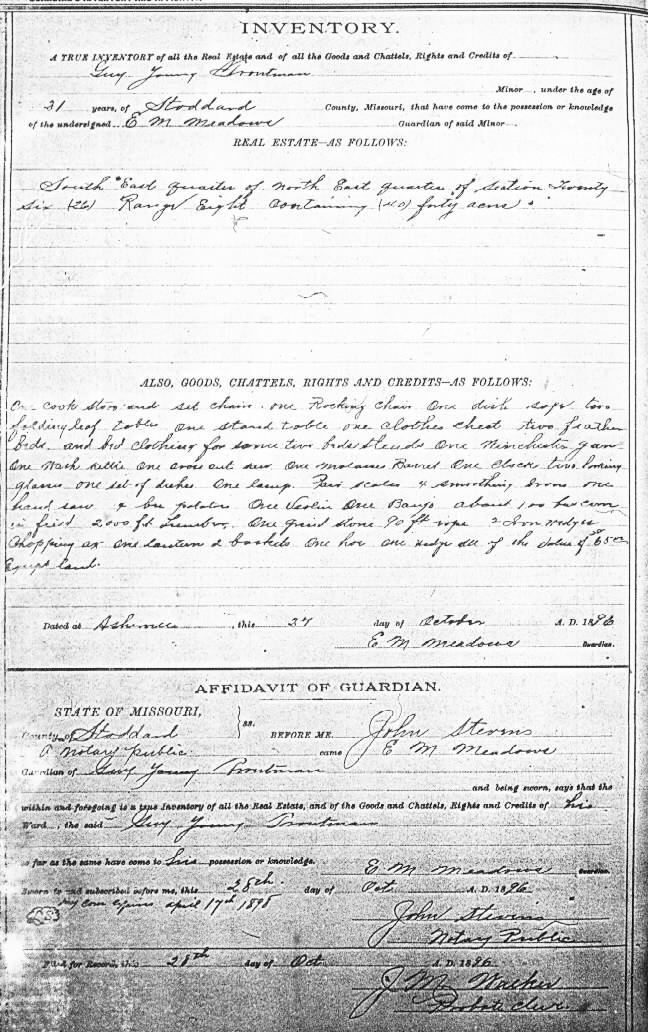 INVENTORY.
A TRUE INVENTORY of all the Real Estate and of all the Goods and Chattels, Rights and Credits of
Guy Young Troutman
Minor , under the age of
21 years, of Stoddard County, Missouri, that have come to the possession or knowledge
of the undersigned E M Meadows Guardian of said Minor .
REAL ESTATE—AS FOLLOWS:
South East quarter of North East quarter of section Twenty
six (26) Range Eight Containing (40) forty acres
ALSO, GOODS, CHATTELS, RIGHTS AND CREDITS—AS FOLLOWS:
One cook stove and set chairs one Rocking Chair One dish safe two
folding leaf tables one stand table one clothes chest two feather
beds and bed clothing for same two bedsteads One Winchester gun
One Wash kettle One cross cut saw One molasses Barrel One Clock two looking
glasses one set of dishes One lamp Pair scales 4 smoothing Irons one
hand saw 4 bu potatoes One Violin One Banjo about 100 bu corn
in field 2000 ft lumber One grind stone 90 ft rope 2 Iron wedges
Chopping ax One Lantern 2 baskets One hoe one wedge all of the value of
Except land.
Dated at , this 27 day of October A. D. 1896
E M Meadows Guardian.
AFFIDAVIT OF GUARDIAN.
STATE OF MISSOURI,
County of Stoddard ss. BEFORE ME, John Stevens
A Notary Public came E M Meadows
Guardian of Guy Young Troutman
and being sworn, says that the
within and foregoing is a true Inventory of all the Real Estate, and of the Goods and Chattels, Rights and Credits of his
Ward , the said Guy Young Troutman
so far as the same have come to his possession or knowledge.
E M Meadows Guardian.
Sworn to and subscribed before me, this 28th day of Oct A. D. 1896
my com expires april 17th 1898
John Stevens
Notary Public
Filed for Record, this 28th day of Oct A. D. 1896
J M Walker
Probate